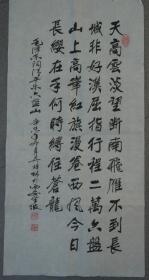 天高雲淡望斷南飛雁不到長
城非好漢屈指行程二萬六盤
山上高峰紅旗漫卷西風今日
長纓在手何時縛住蒼龍
毛澤東詞清平樂六盤山